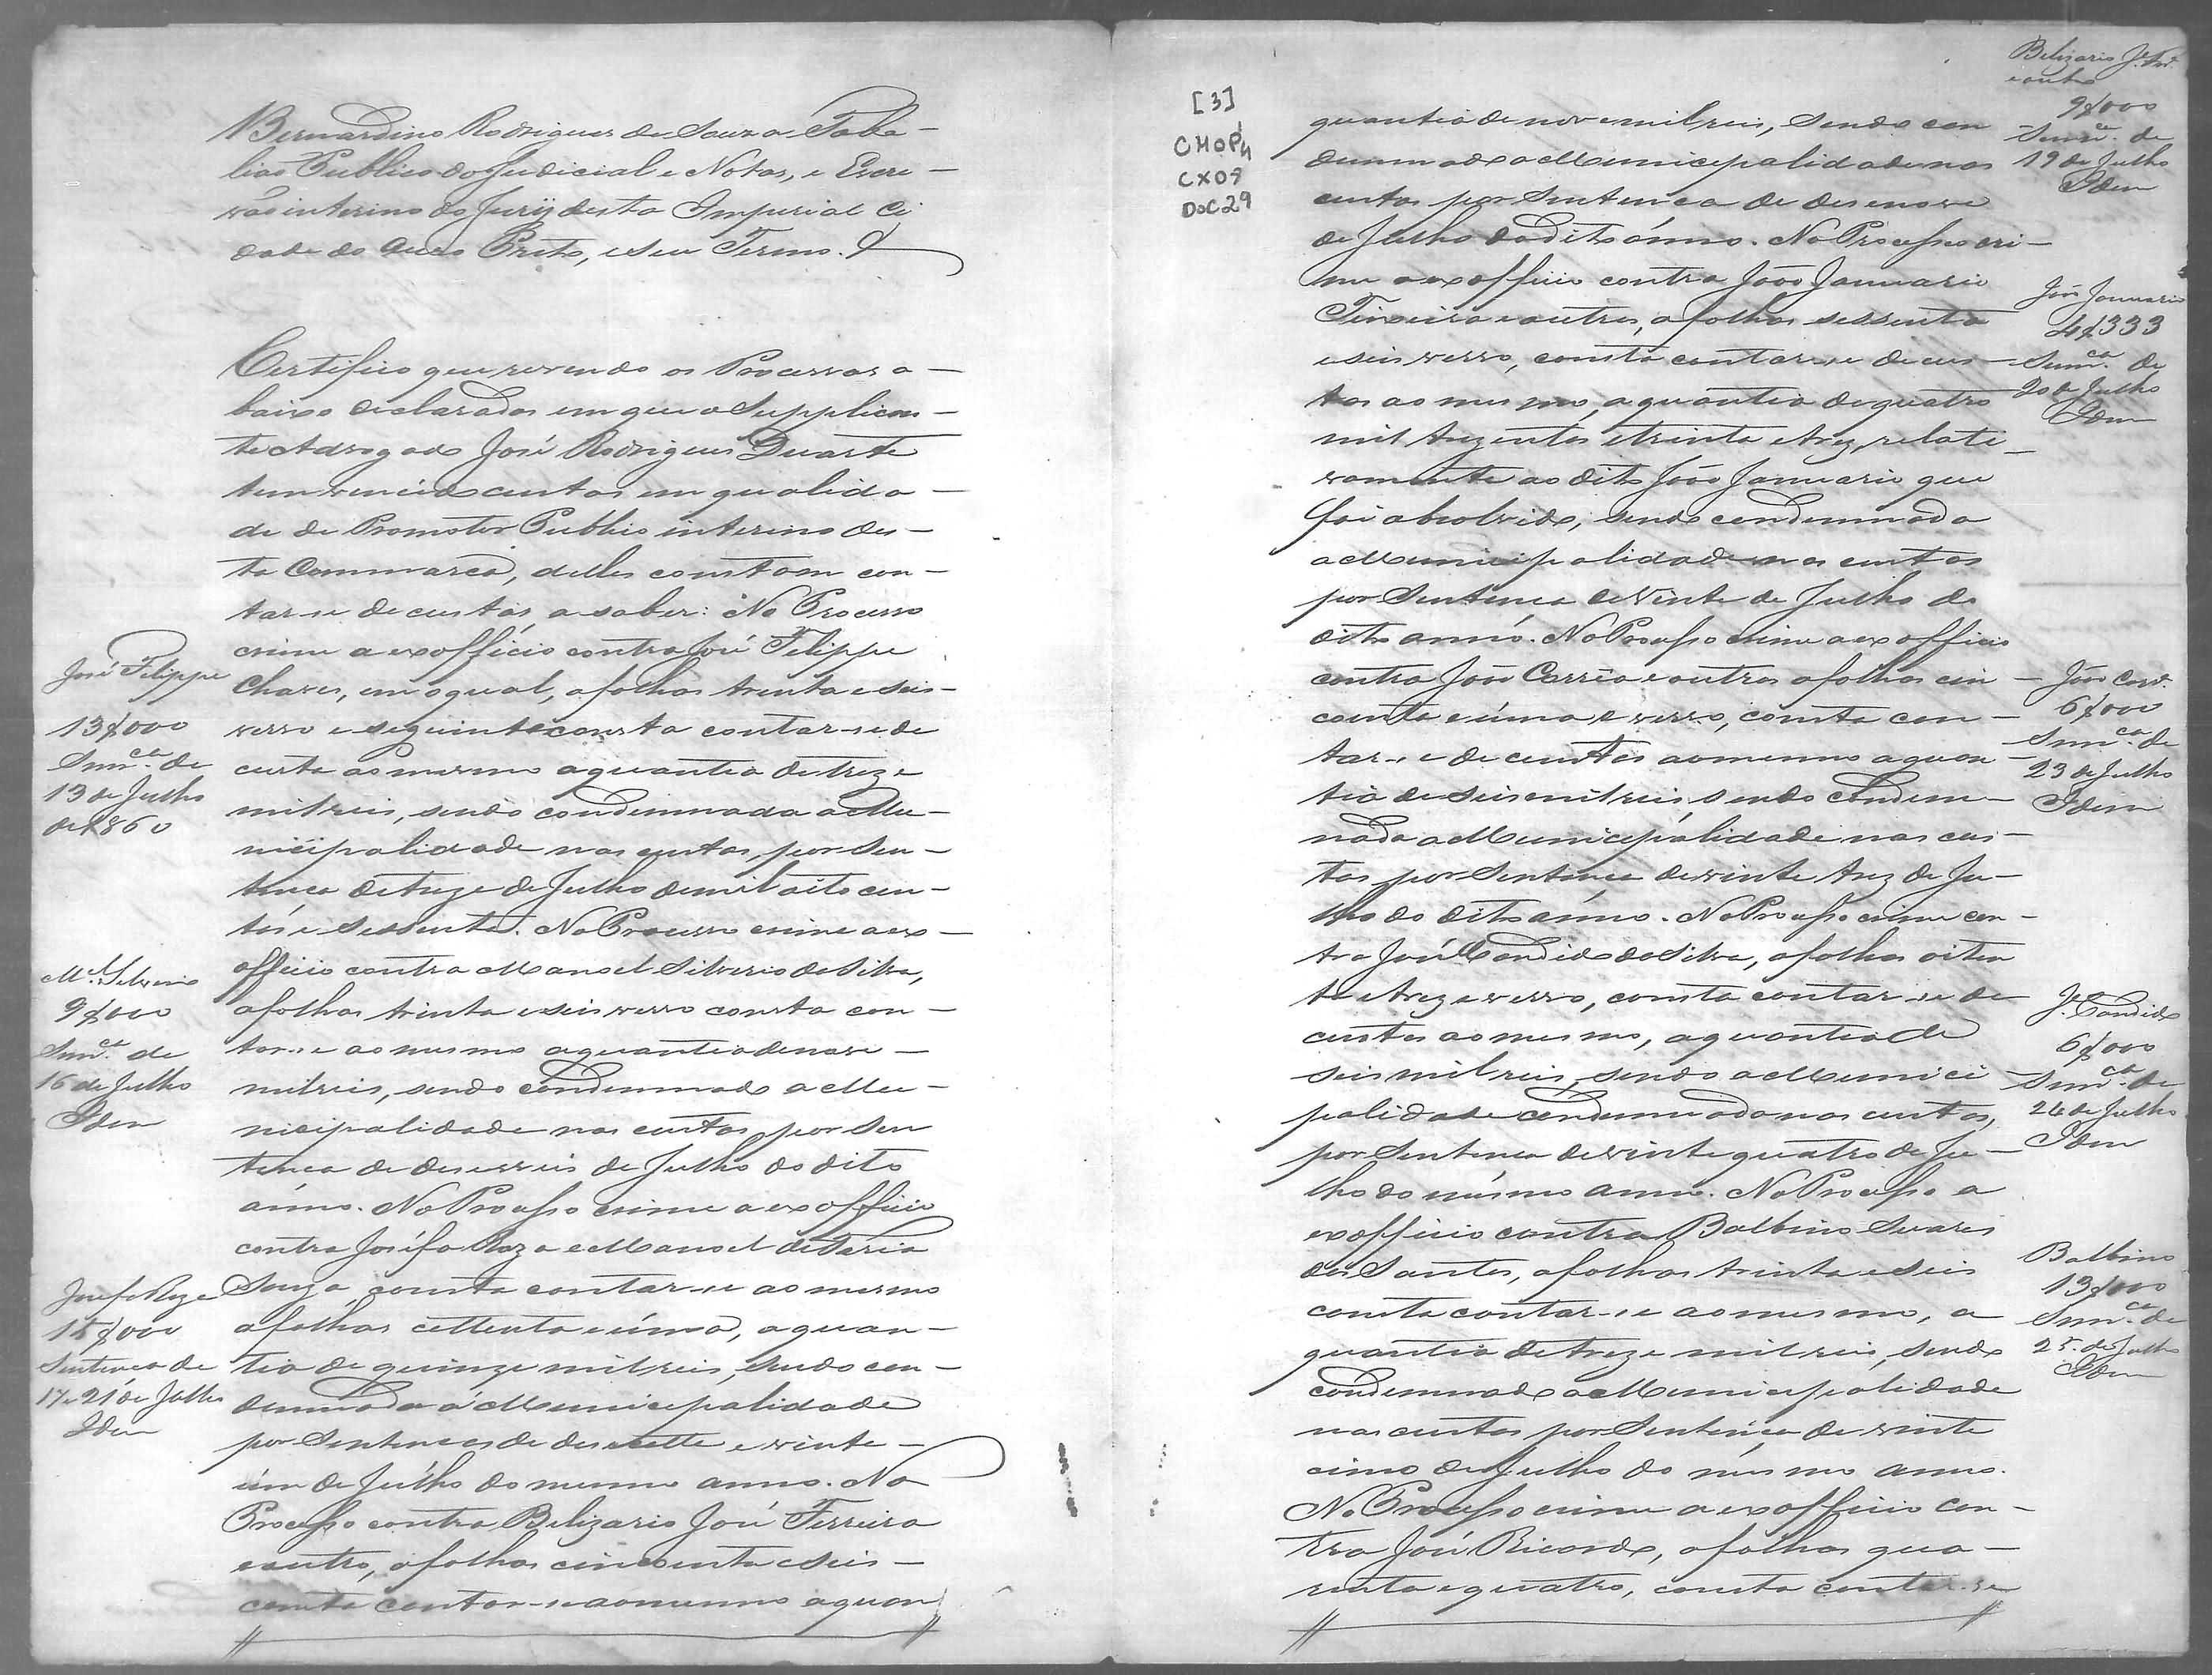 Bernardino Rodrigues de Souza Tabe-
lião Publico do Judicial e Notas, e Escri-
vão interino do Jury desta Imperial Ci
dade do Ouro Preto, e seu Termo. &
Certifico que revendo os Processos a-
baixo declarados em que o Supplican-
te Advogado José Rodrigues Duarte
tem vencido custas em qualida-
de de Promotor Publico interino des-
ta Commarca, delles constam con-
tar-se de custas, a saber: No Processo
crime a exofficio contra José Filippe
Chaves, em o qual, a folhas trinta e seis
verso e seguinte consta contar-se de
custa ao mesmo a quantia de treze
mil reis, sendo condemnada a Mu-
nicipalidade nas custas, por Sen-
tença de treze de Julho de mil oito cen-
tos e sessenta. No Processo crime a ex-
officio contra Manoel Silverio da Silva,
a folhas trinta e seis verso consta con-
tar-se ao mesmo a quantia de nove
mil reis, sendo condemnado a Mu-
nicipalidade nas custas por Sen
tença de deseseis de Julho do dito
anno. No Processo crime a exofficio
contra Josefa Roza e Manoel de Faria
Souza, consta contar-se ao mesmo
a folhas settenta e uma, a quan-
tia de quinze mil reis, sendo con-
demnada a Municipalidade
por Sentenças de desesette e vinte
um de Julho do mesmo anno. No
Processo contra Belizario José Ferreira
e outro, a folhas cincoenta e seis
consta contar-se ao mesmo a quan
José Filippe
13$000
Senn.ça de
13 de Julho
de 1860
M.el Silverio
9$000
Senn.ça de
16 de Julho
Idem
Josefa Roza
15$000
Sentença de
17 e 21 de Julho
Idem
[3]
CMOP
CX09
DOC29
quantia de nove mil reis, sendo con
demnado a Municipalidade nas
custas por Sentença de desenove
de Julho do dito anno. No Processo cri-
me a exofficio contra João Januario
Teixeira e outros, a folhas sessenta
e seis verso, consta contar-se de cus-
tas ao mesmo, a quantia de quatro
mil trezentos e trinta e trez, relati-
vamente ao dito João Januario que
foi absolvido, sendo condemnada
a Municipalidade nas custas
por Sentença de vinte de Julho do
dito anno. No Processo crime a exofficio
contra João Corrêa e outros a folhas cin
coenta e uma e verso, consta con-
tar-se de custas ao mesmo a quan
tia de seis mil reis, sendo condem-
nada a Municipalidade nas cus-
tas por Sentença de vinte trez de Ju-
lho do dito anno. No Processo crime con-
tra José Candido da Silva, a folhas oiten
ta e trez e verso, consta contar-se de
custas ao mesmo, a quantia de
seis mil reis, sendo a Munici
palidade condemnada nas custas,
por Sentença de vinte quatro de Ju-
lho do mesmo anno. No Processo a
exofficio contra Balbino Soares
dos Santos, a folhas trinta e seis
consta contar-se ao mesmo, a
quantia de treze mil reis, sendo
condemnado a Municipalidade
nas custas por Sentença de vinte
cinco de Julho do mesmo anno.
No Processo crime a exofficio con-
tra José Ricardo, a folhas qua-
renta e quatro, consta contar-se
Belizario J.e Fer.
e outro
9$000
Senn.ça de
19 de Julho
Idem
João Januario
4$333
Senn.ça de
20 de Julho
Idem
João Corr.
6$000
Senn.ça de
23 de Julho
Idem
J.e Candido
6$000
Senn.ça de
24 de Julho
Idem
Balbino
13$000
Senn.ça de
25 de Julho
Idem